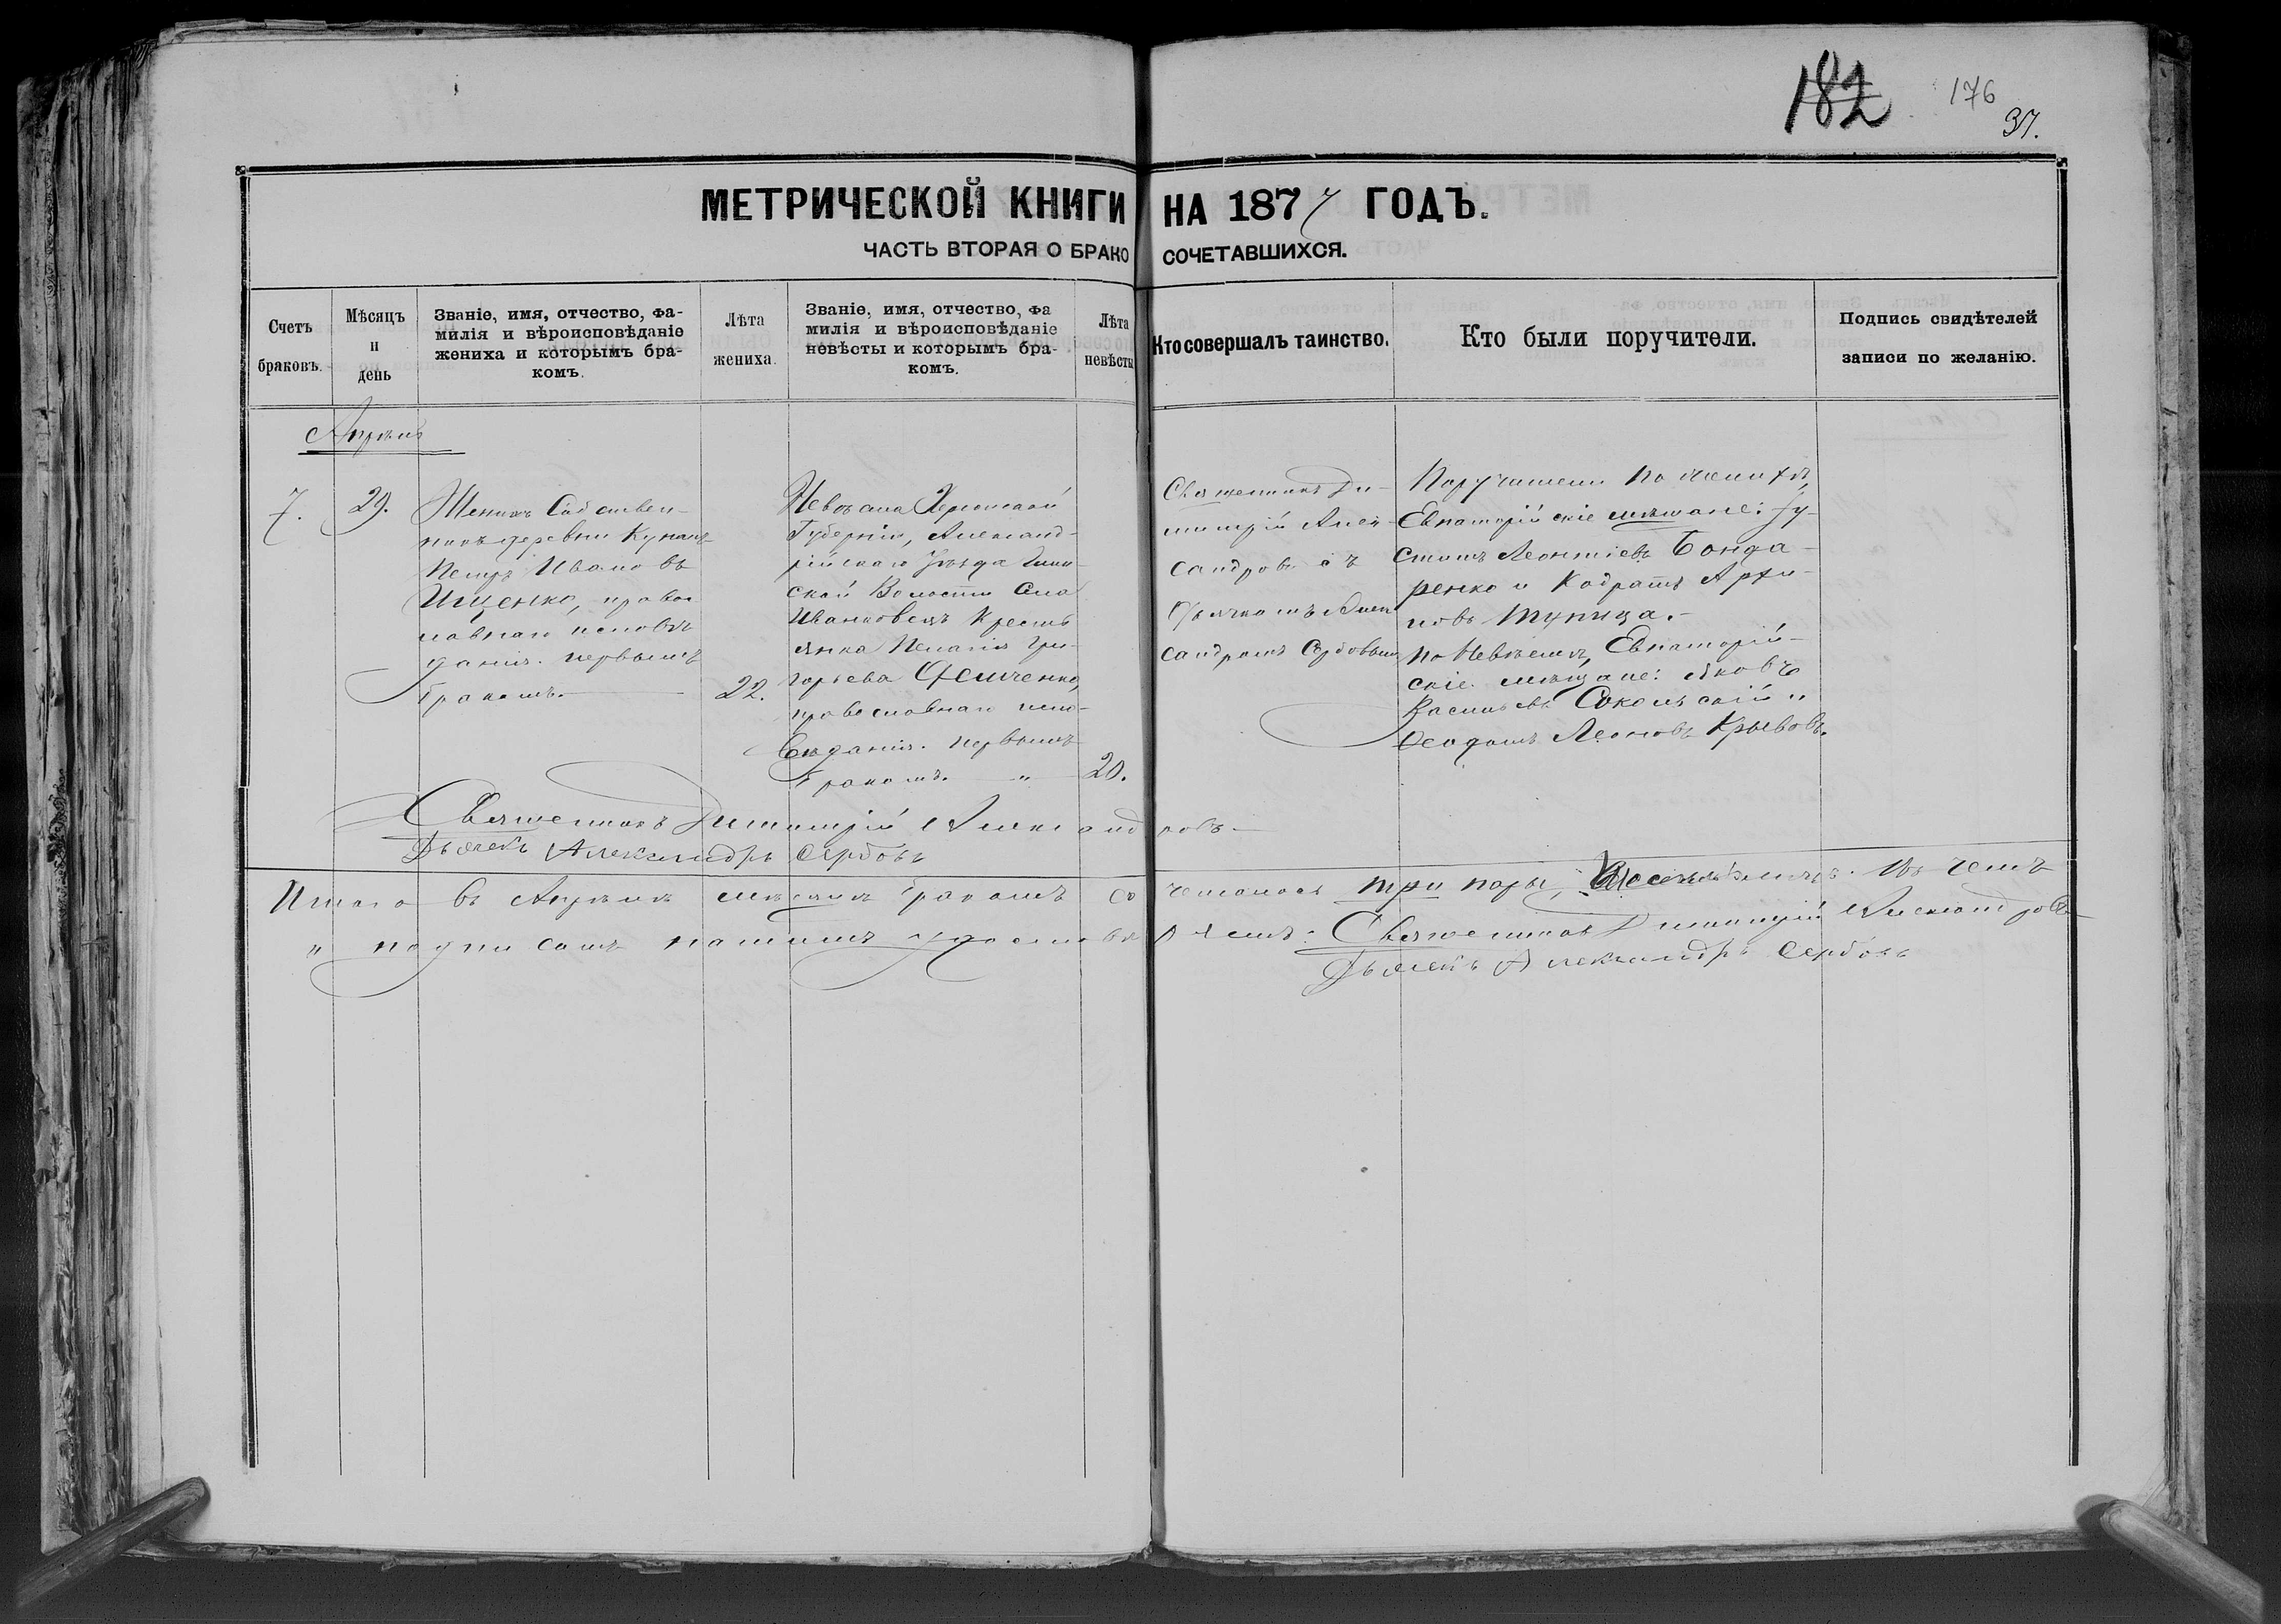 182 176
37.
МЕТРИЧЕСКОЙ КНИГИ НА 1877 ГОДЪ.
ЧАСТЬ ВТОРАЯ О БРАКОСОЧЕТАВШИХСЯ.
Счетъ браковъ.
Мѣсяцъ и день
Званіе, имя, отчество, фа-
милія и вѣроисповѣданіе
жениха и которымъ бра-
комъ.
Лѣта жениха.
Званіе, имя, отчество, фа
милія и вѣроисповѣданіе
невѣсты и которымъ бра-
комъ.
Лѣта невѣсты
Кто совершалъ таинство.
Кто были поручители.
Подпись свидѣтелей
записи по желанію.
Апрѣль
7.
29.
Женихъ Собствен-
никъ деревни
Петръ Ивановъ
Ищенко, правос-
лавнаго исповѣ-
данія. первымъ
бракомъ.
22.
Невѣста Херсонской
Губерніи, Александ-
рійскаго Уѣзда
ской Волости Села
Ивановки Кресть
янка Пелагія Гри-
горьева
православнаго испо-
вѣданія. первымъ
бракомъ. "
20.
Священникъ Ди-
митрій Алек-
сандровъ съ
Дьячкомъ Алек
сандромъ Сербовымъ
Поручители по женихѣ,
Евпаторійскіе мѣщане: Іу-
стинъ Леонтіевъ Бонда-
ренко и Кодратъ
повъ Тупица.-
по Невѣстѣ, Евпаторій-
скіе мѣщане: Яковъ
Васильевъ Сокольскій и
Леоновъ
Священникъ Димитрій Александровъ
Дьячекъ Александръ Сербовъ
Итого въ Апрѣлѣ мѣсяцѣ бракомъ сочеталось три пары, Въ чемъ
" подписомъ нашимъ удостовѣряемъ: Священникъ Димитрій Александровъ
Дьячекъ Александръ Сербовъ